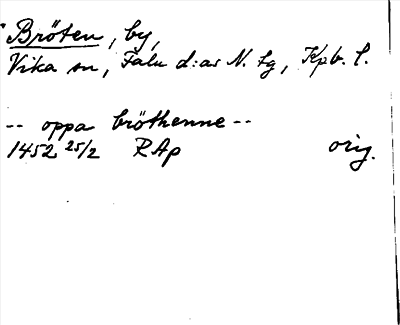 Bröten, by,
Vika sn, Falu d:ar N. tg, Kpb. l.
-- oppa bröthenne --
1452 25/2 RAp orig.